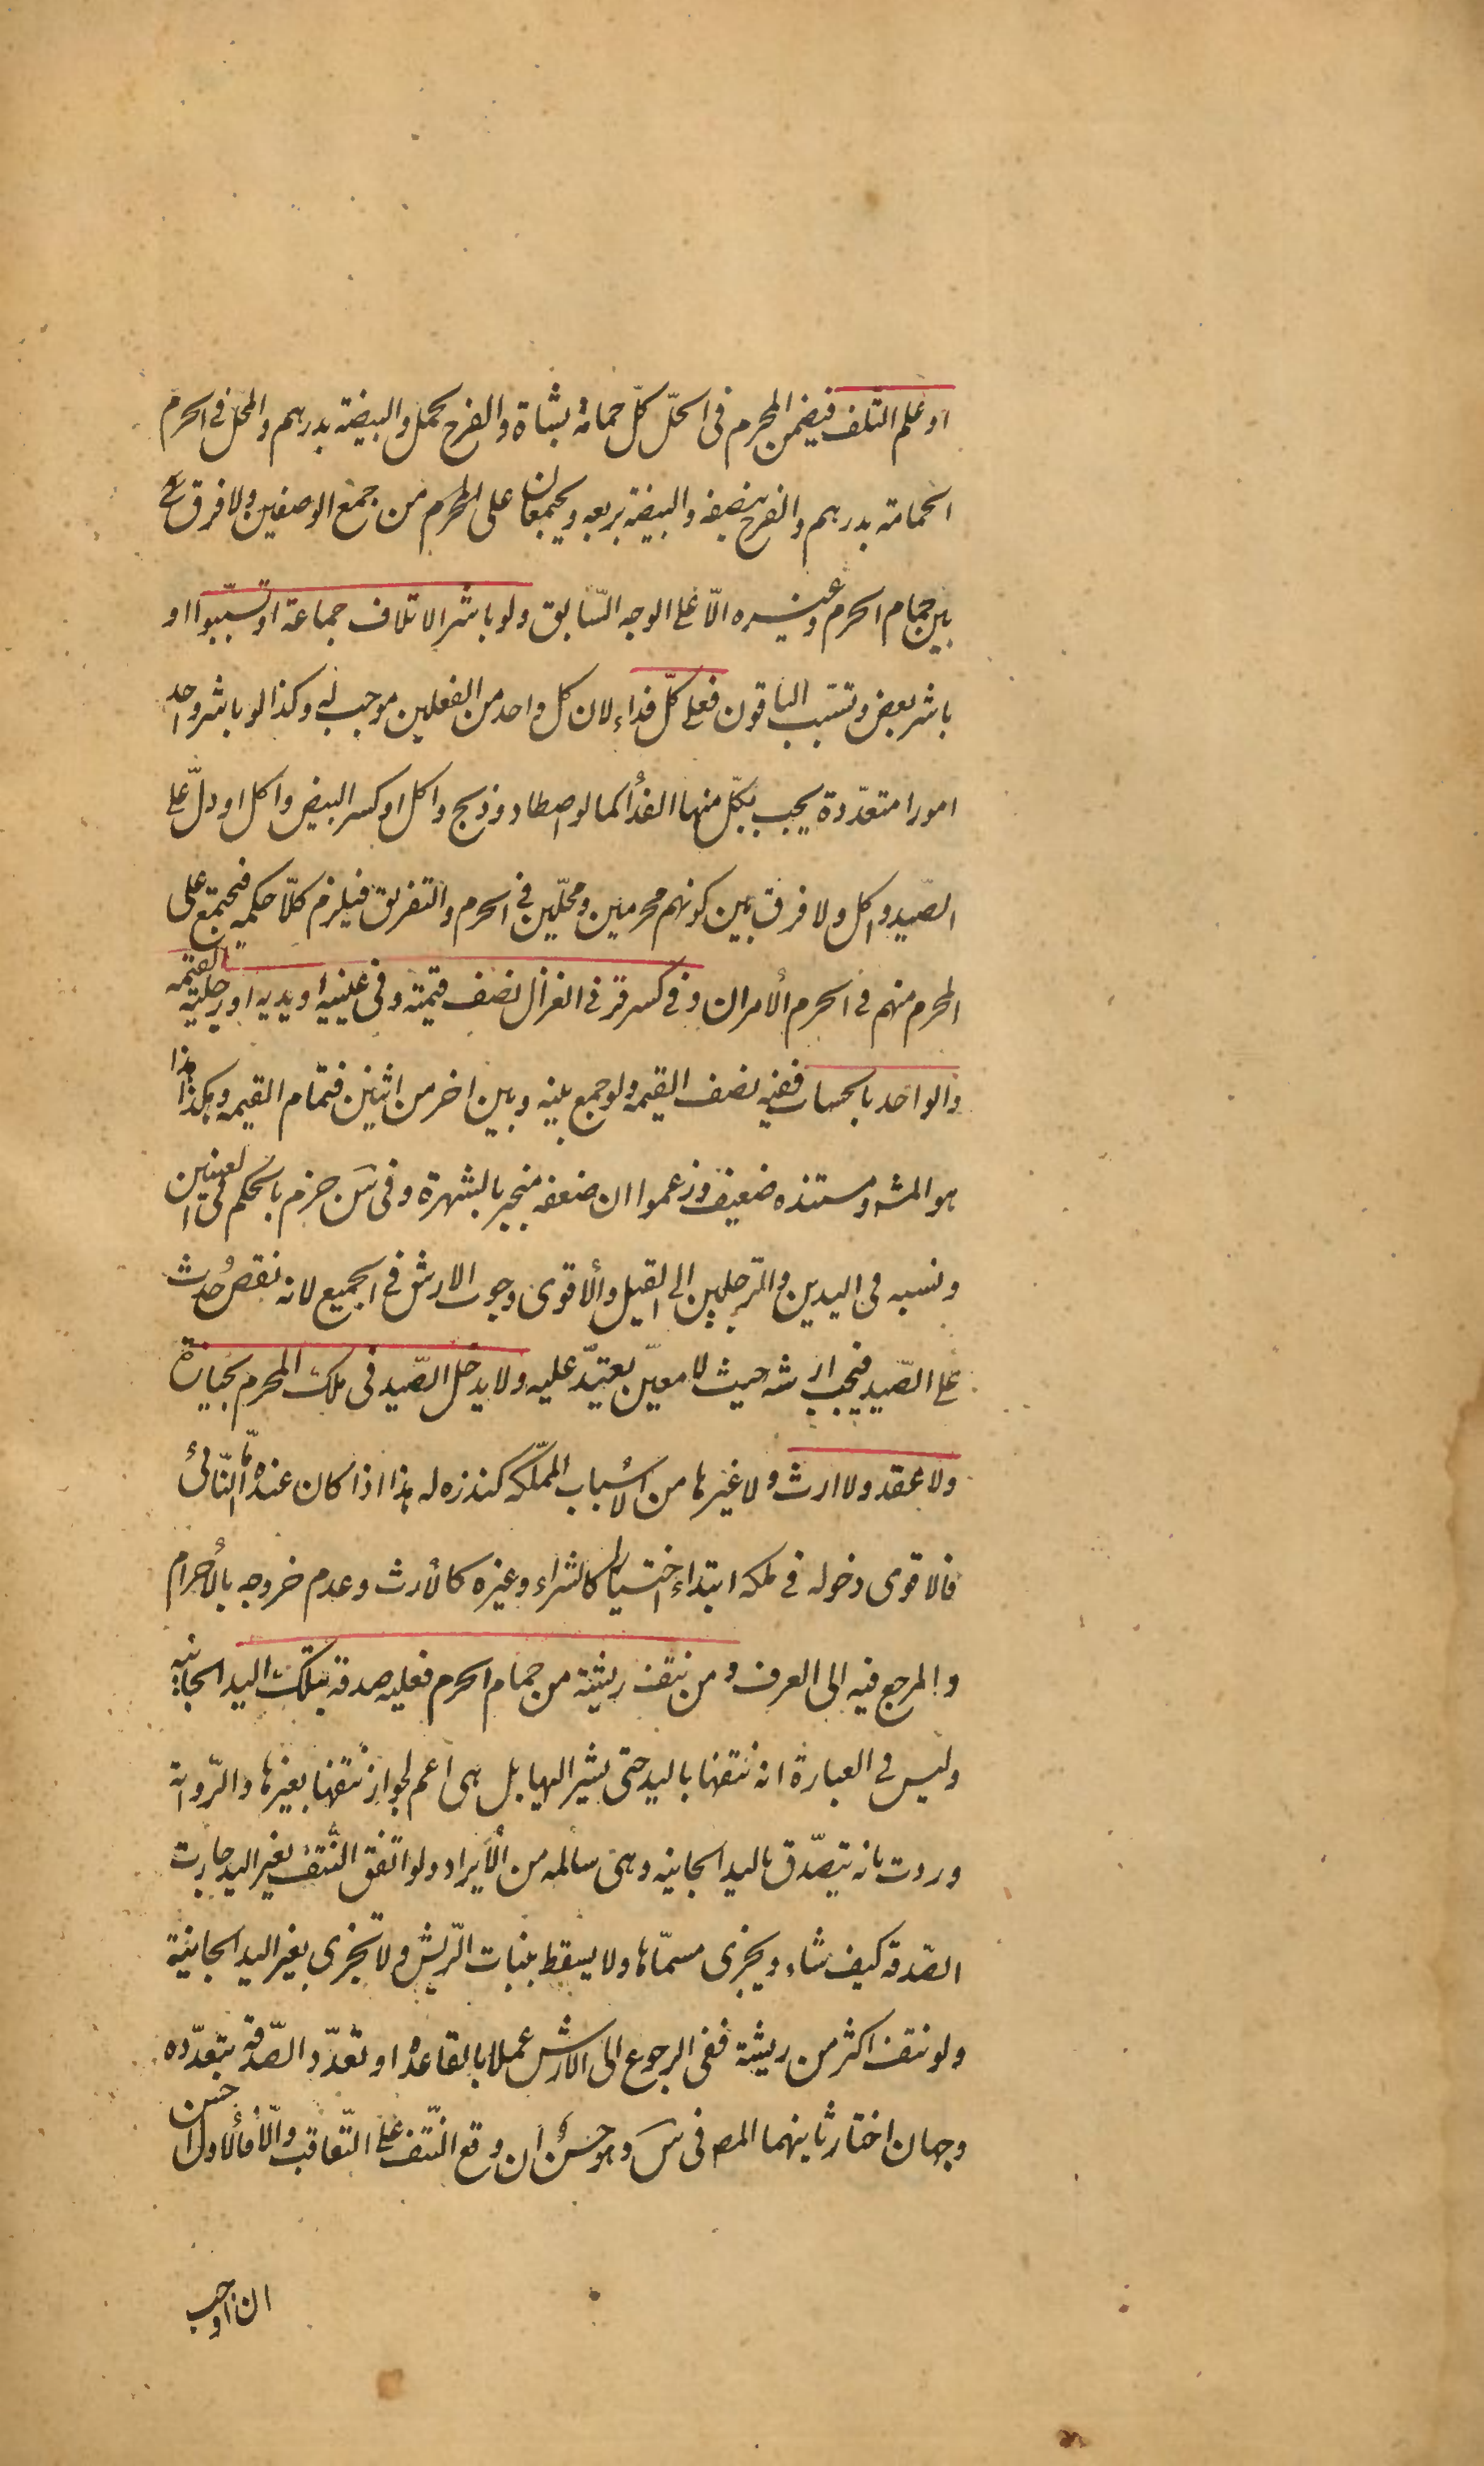 او علم التلف فيضمن المحرم فى الحلّ كلّ حمامة بشاة والفرخ بحمل والبيضة بدرهم والمحل فى الحرم
الحمامة بدرهم والفرخ بنصفه والبيضة بربعه ويجتمعان على المحرم من جمع الوصفين ولا فرق ح
بين حمام الحرم وغيره الّا على الوجه السّابق ولو باشر الاتلاف جماعة او تسبّبوا او
باشر بعض وتسبّب الباقون فعلى كلّ فداء لان كل واحد من الفعلين موجب له وكذا لو باشر واحد
امورا متعدّدة يجب بكلّ منها الفدأ كما لو اصطاد وذبح واكل او كسر البيض واكل او دلّ على
الصّيد واكل ولا فرق بين كونهم محرمين ومحلّين فى الحرم والتفريق فيلزم كلّا حكمه فيجتمع على
المحرم منهم فى الحرم الأمران وفى كسر قرنى الغزال نصف قيمته وفى عينيه او يديه او رجليه القيمه
والواحد بالحساب ففيه نصف القيمه ولو جمع بينه وبين اخر من اثنين فتمام القيمه وهكذا هذا
هو المشه ومستنده ضعيف وزعموا ان ضعفه منجبر بالشهرة وفى س جزم بالحكم فى العينين
ونسبه فى اليدين والرّجلين الى القيل والأقوى وجوب الارش فى الجميع لانه نقص حدث
على الصّيد فيجب ارشه حيث لا معيّن يعتدّ عليه ولا يدخل الصّيد فى ملك المحرم بحيازة
ولا عقد ولا ارث ولا غيرها من الأسباب المملّكه كنذره له هذا اذا كان عنده امّا النّائى
فالاقوى دخوله فى ملكه ابتداء اختيارا كالشراء وغيره كالأرث وعدم خروجه بالأحرام
والمرجع فيه الى العرف ومن نتف ريشة من حمام الحرم فعليه صدقة بتلك اليد الجانيه
وليس فى العبارة انه نتفها باليد حتى يشير اليها بل هى اعم لجواز نتفها بغيرها والرّواية
وردت بانه يتصّدق باليد الجانيه وهى سالمه من الأيراد ولو اتفق النّتف بغير اليد جازت
الصّدقة كيف شاء ويجزى مسمّاها ولا يسقط بنبات الرّيش ولا تجزى بغير اليد الجانية
ولو نتف اكثر من ريشة ففى الرجوع الى الأرش عملا بالقاعدة او تعدّد الصّدقة بتعدّده
وجهان اختار ثانيهما المص فى س وهو حسن ان وقع النّتف على التّعاقب والّا فالأول احسن
ان اوجب